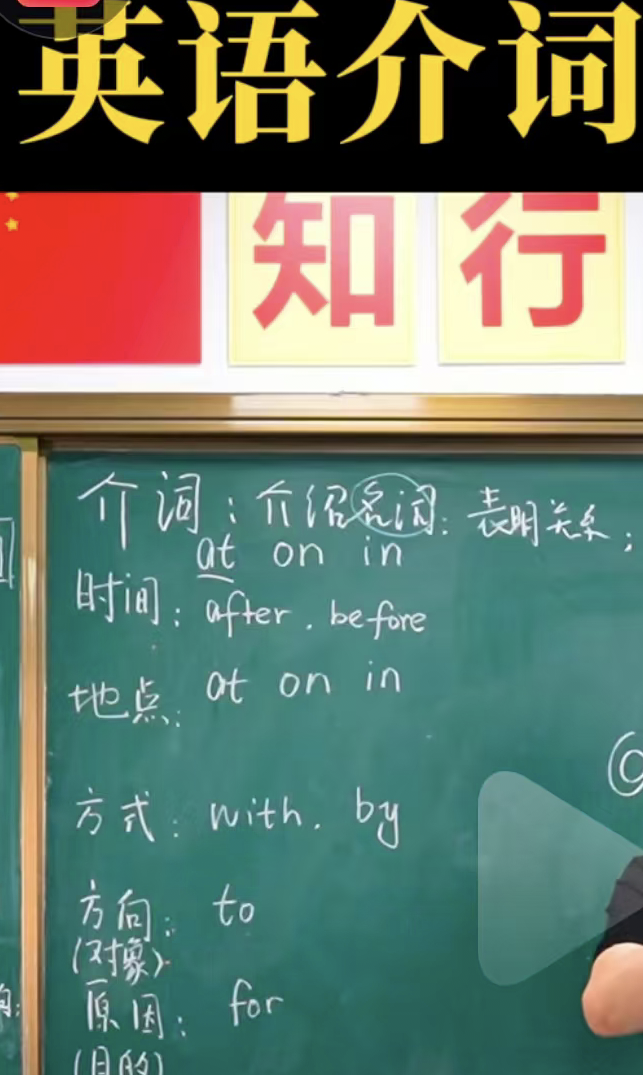 英语介词
知行
介词：介绍名词：表明关系；
at on in
时间：after，before
地点：at on in
方式：with，by
方向：to
(对象)
原因：for
(目的)